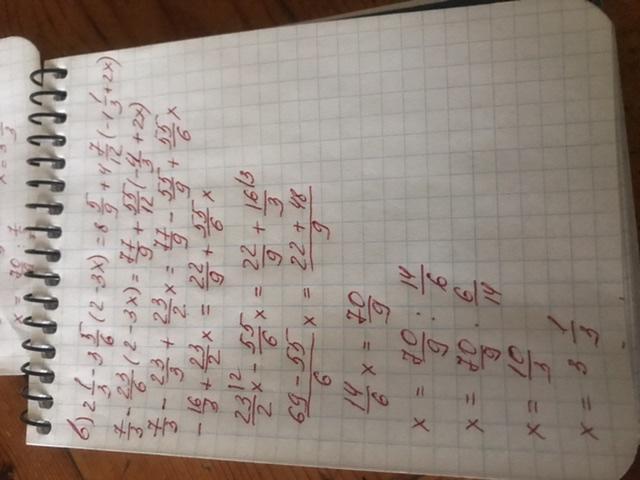 б) 2 1/3 - 3 5/6 (2 - 3x) = 8 5/9 + 4 7/12 (-1 1/3 + 2x)
7/3 - 23/6 (2 - 3x) = 77/9 + 55/12 (-4/3 + 2x)
7/3 - 23/3 + 23/2 x = 77/9 - 55/9 + 55/6 x
- 16/3 + 23/2 x = 22/9 + 55/6 x
23/2 x - 55/6 x = 22/9 + 16/3
(69 - 55)/6 x = (22 + 48)/9
14/6 x = 70/9
x = 70/9 : 14/6
x = 70/9 · 6/14
x = 10/3
x = 3 1/3